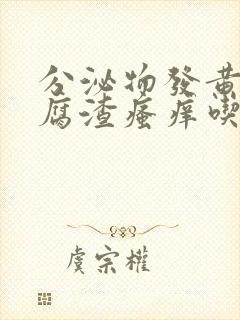 分泌物發黃
腐渣瘙痒喫
虞宗權